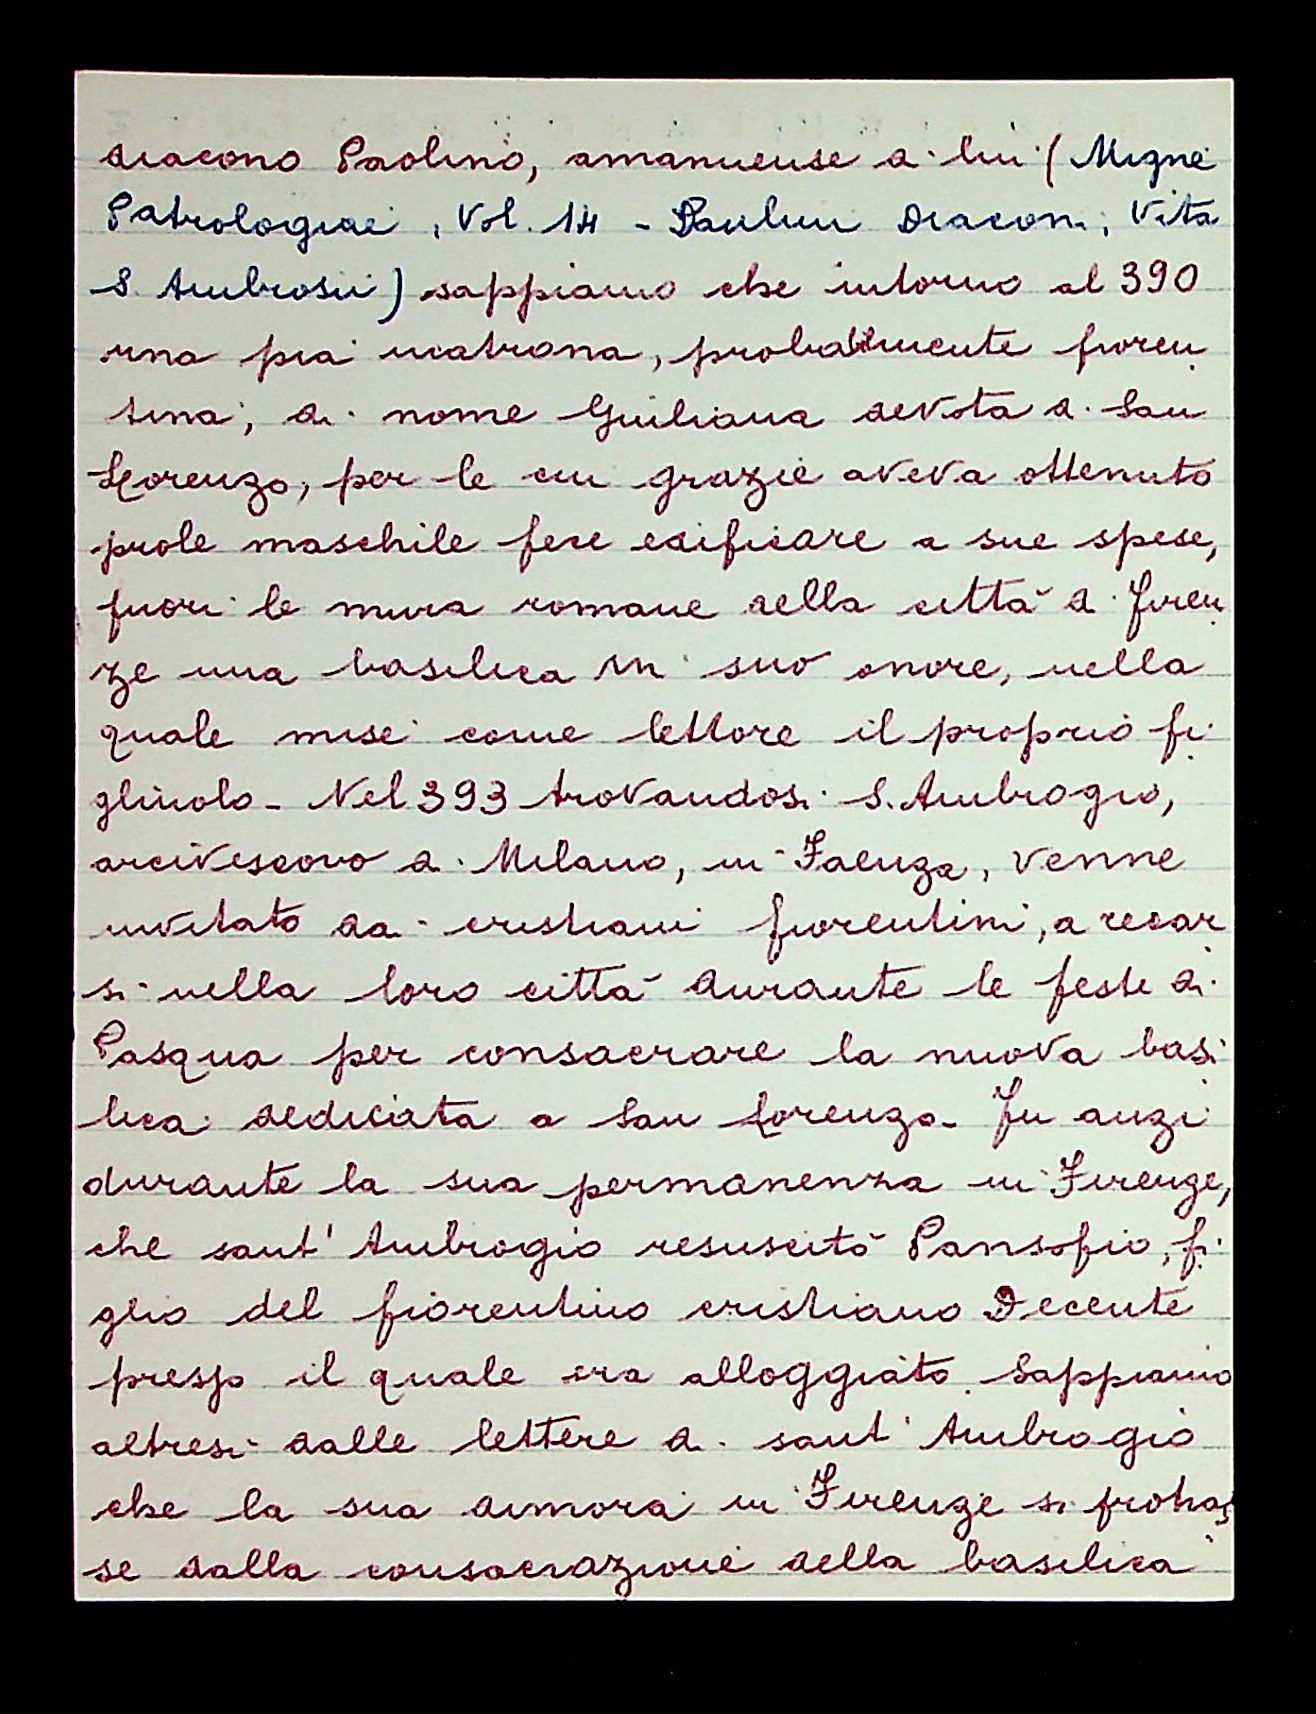 diacono Paolino, amanuense di lui (Migne
Patrologiae, Vol. 14 - Paulini Diaconi, Vita
S. Ambrosii) sappiamo che intorno al 390
una pia matrona, probabilmente fioren
tina, di nome Giuliana devota di San
Lorenzo, per le cui grazie aveva ottenuto
prole maschile fece edificare a sue spese,
fuori le mura romane della città di Firen
ze una basilica in suo onore, nella
quale mise come lettore il proprio fi
gliuolo - Nel 393 trovandosi S. Ambrogio,
arcivescovo di Milano, in Faenza, venne
invitato dai cristiani fiorentini, a recar
si nella loro città durante le feste di
Pasqua per consacrare la nuova basi
lica dedicata a San Lorenzo - Fu anzi
durante la sua permanenza in Firenze,
che sant' Ambrogio resuscitò Pansofio, fi
glio del fiorentino cristiano Decente
presso il quale era alloggiato. Sappiamo
altresì dalle lettere di sant' Ambrogio
che la sua dimora in Firenze si protras
se dalla consacrazione della basilica